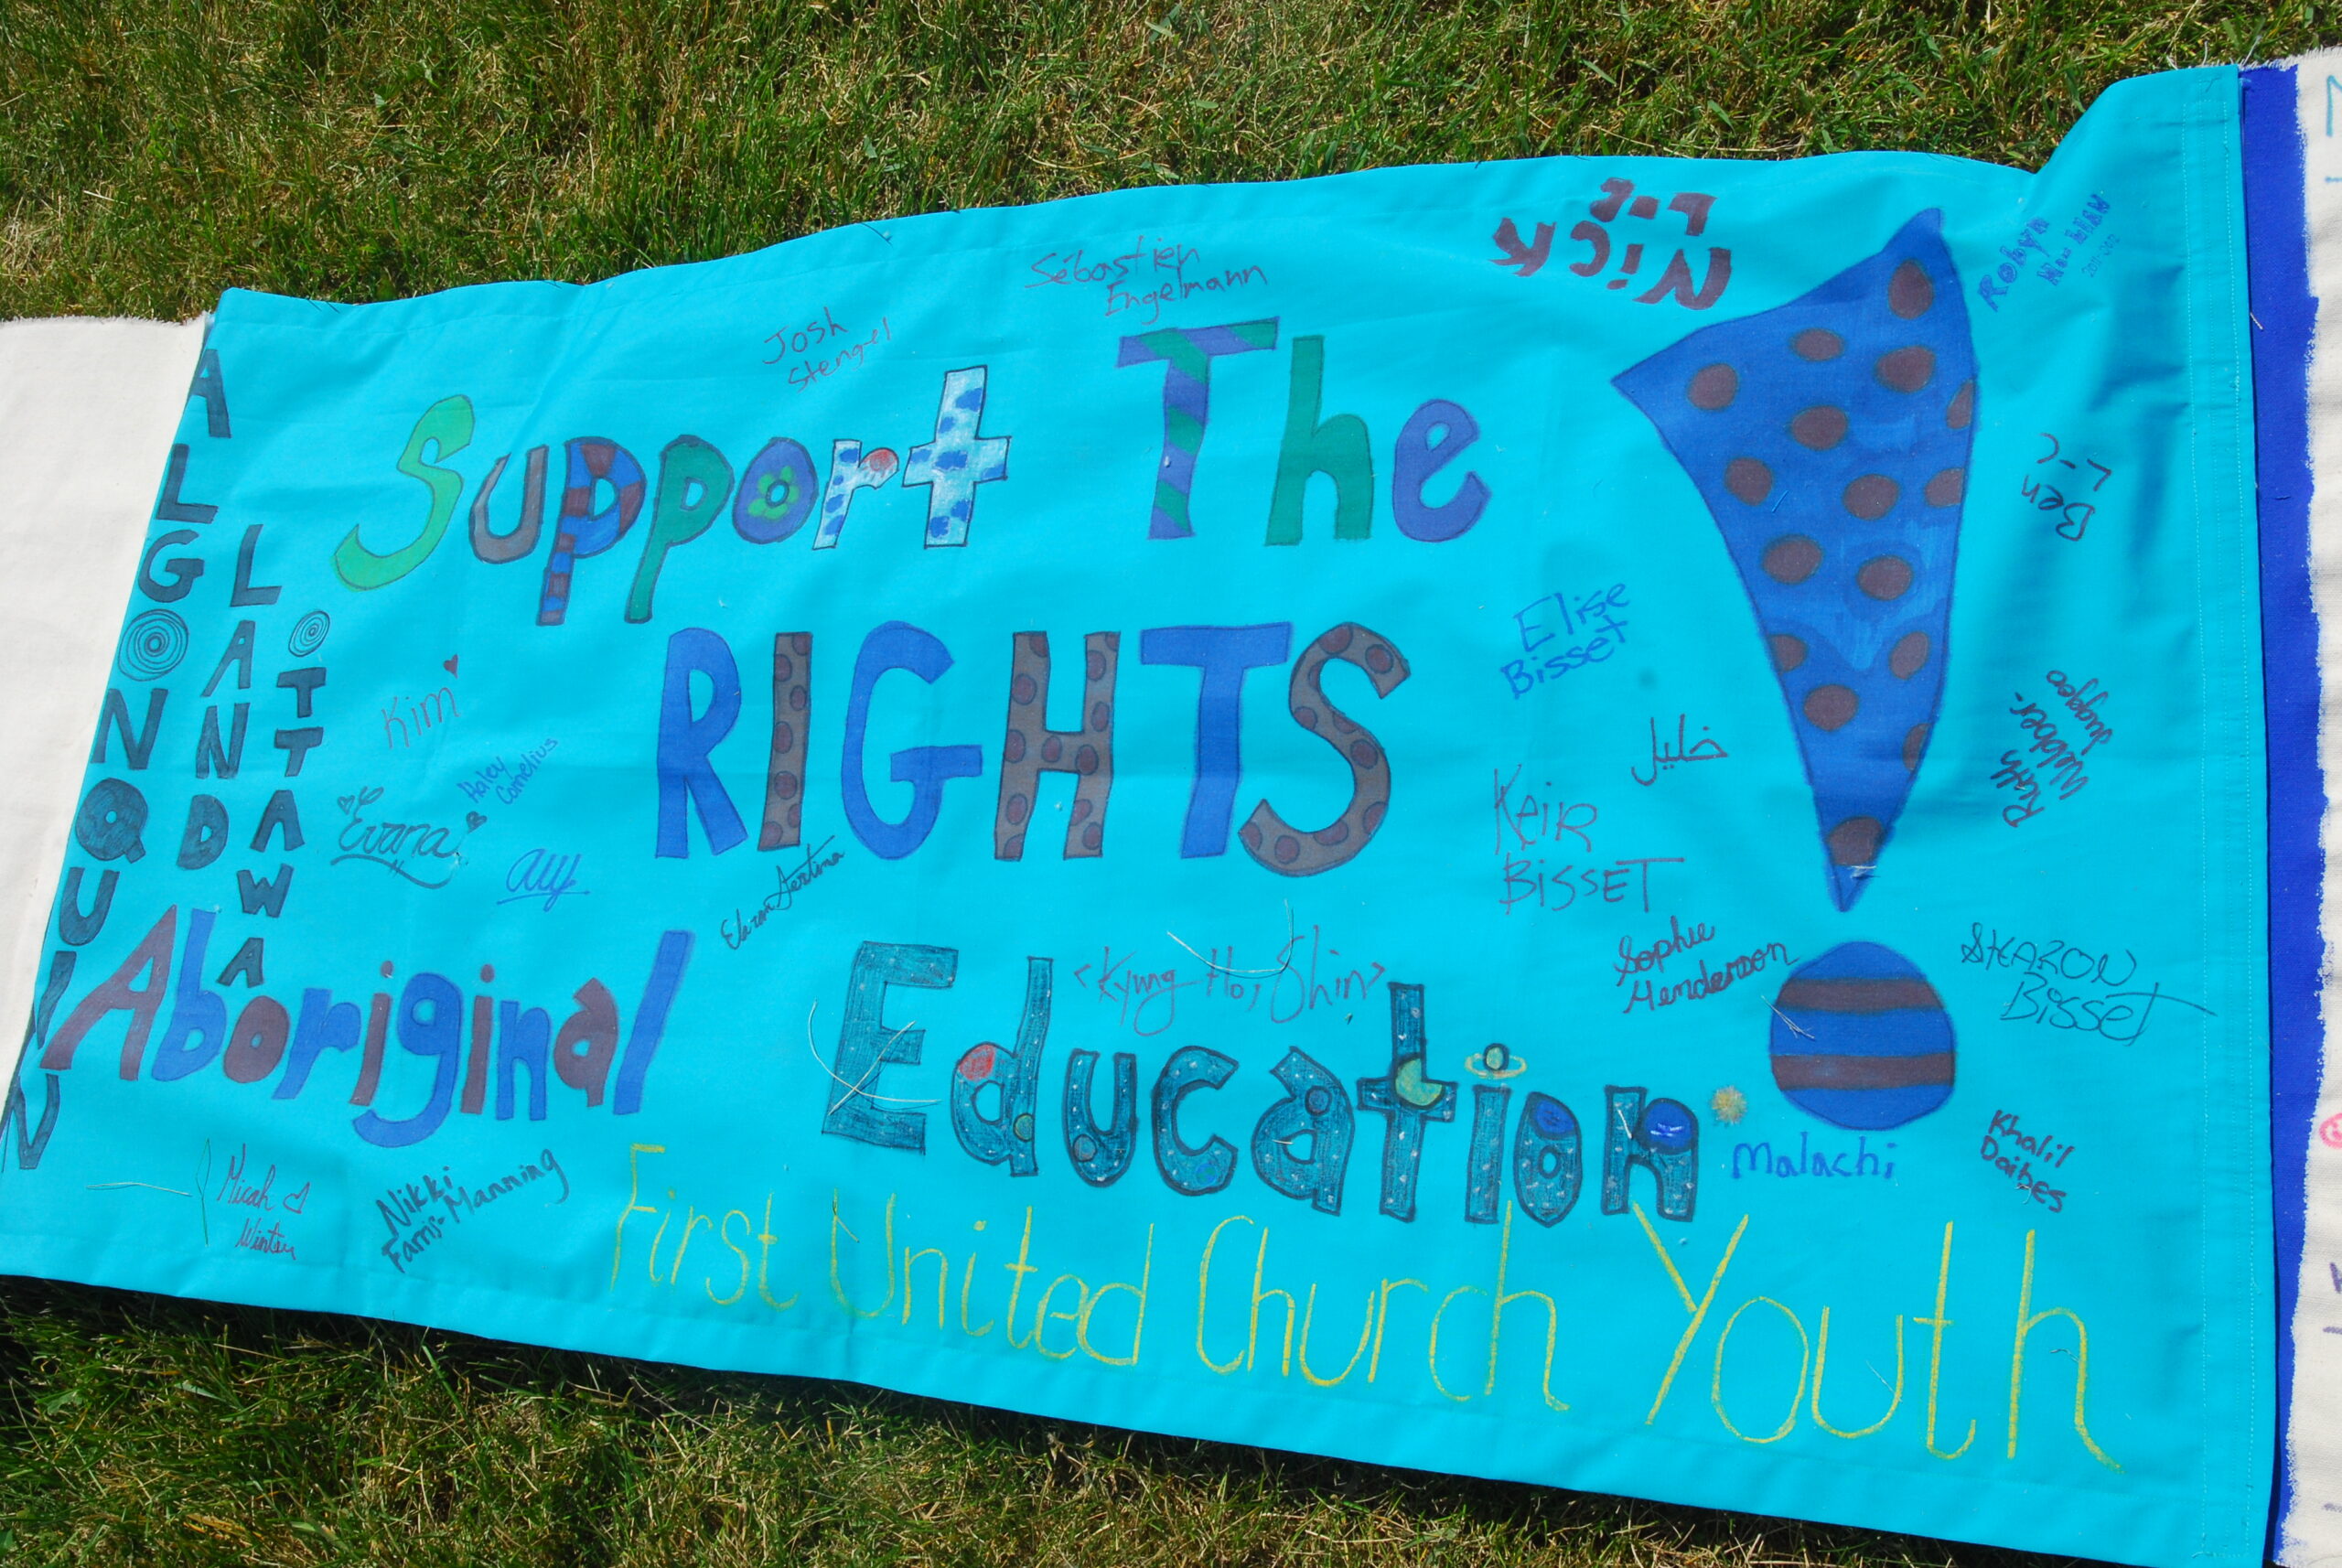 ALGONQUIN
LAND
OTTAWA
Support The
RIGHTS
Aboriginal Education
!
First United Church Youth
Josh
Stengel
Sébastien
Engelmann
Robyn
Ben
L-C
Elise
Bisset
خليل
Keir
BissET
Kim
Haley
Cornelius
Evana
Ruth
Webber-
<Kyung Ho, Shin>
Sophie
Henderson
SHARON
Bisset
Malachi
Khalil
Daibes
Micah
Winter
Nikki
Farris-Manning